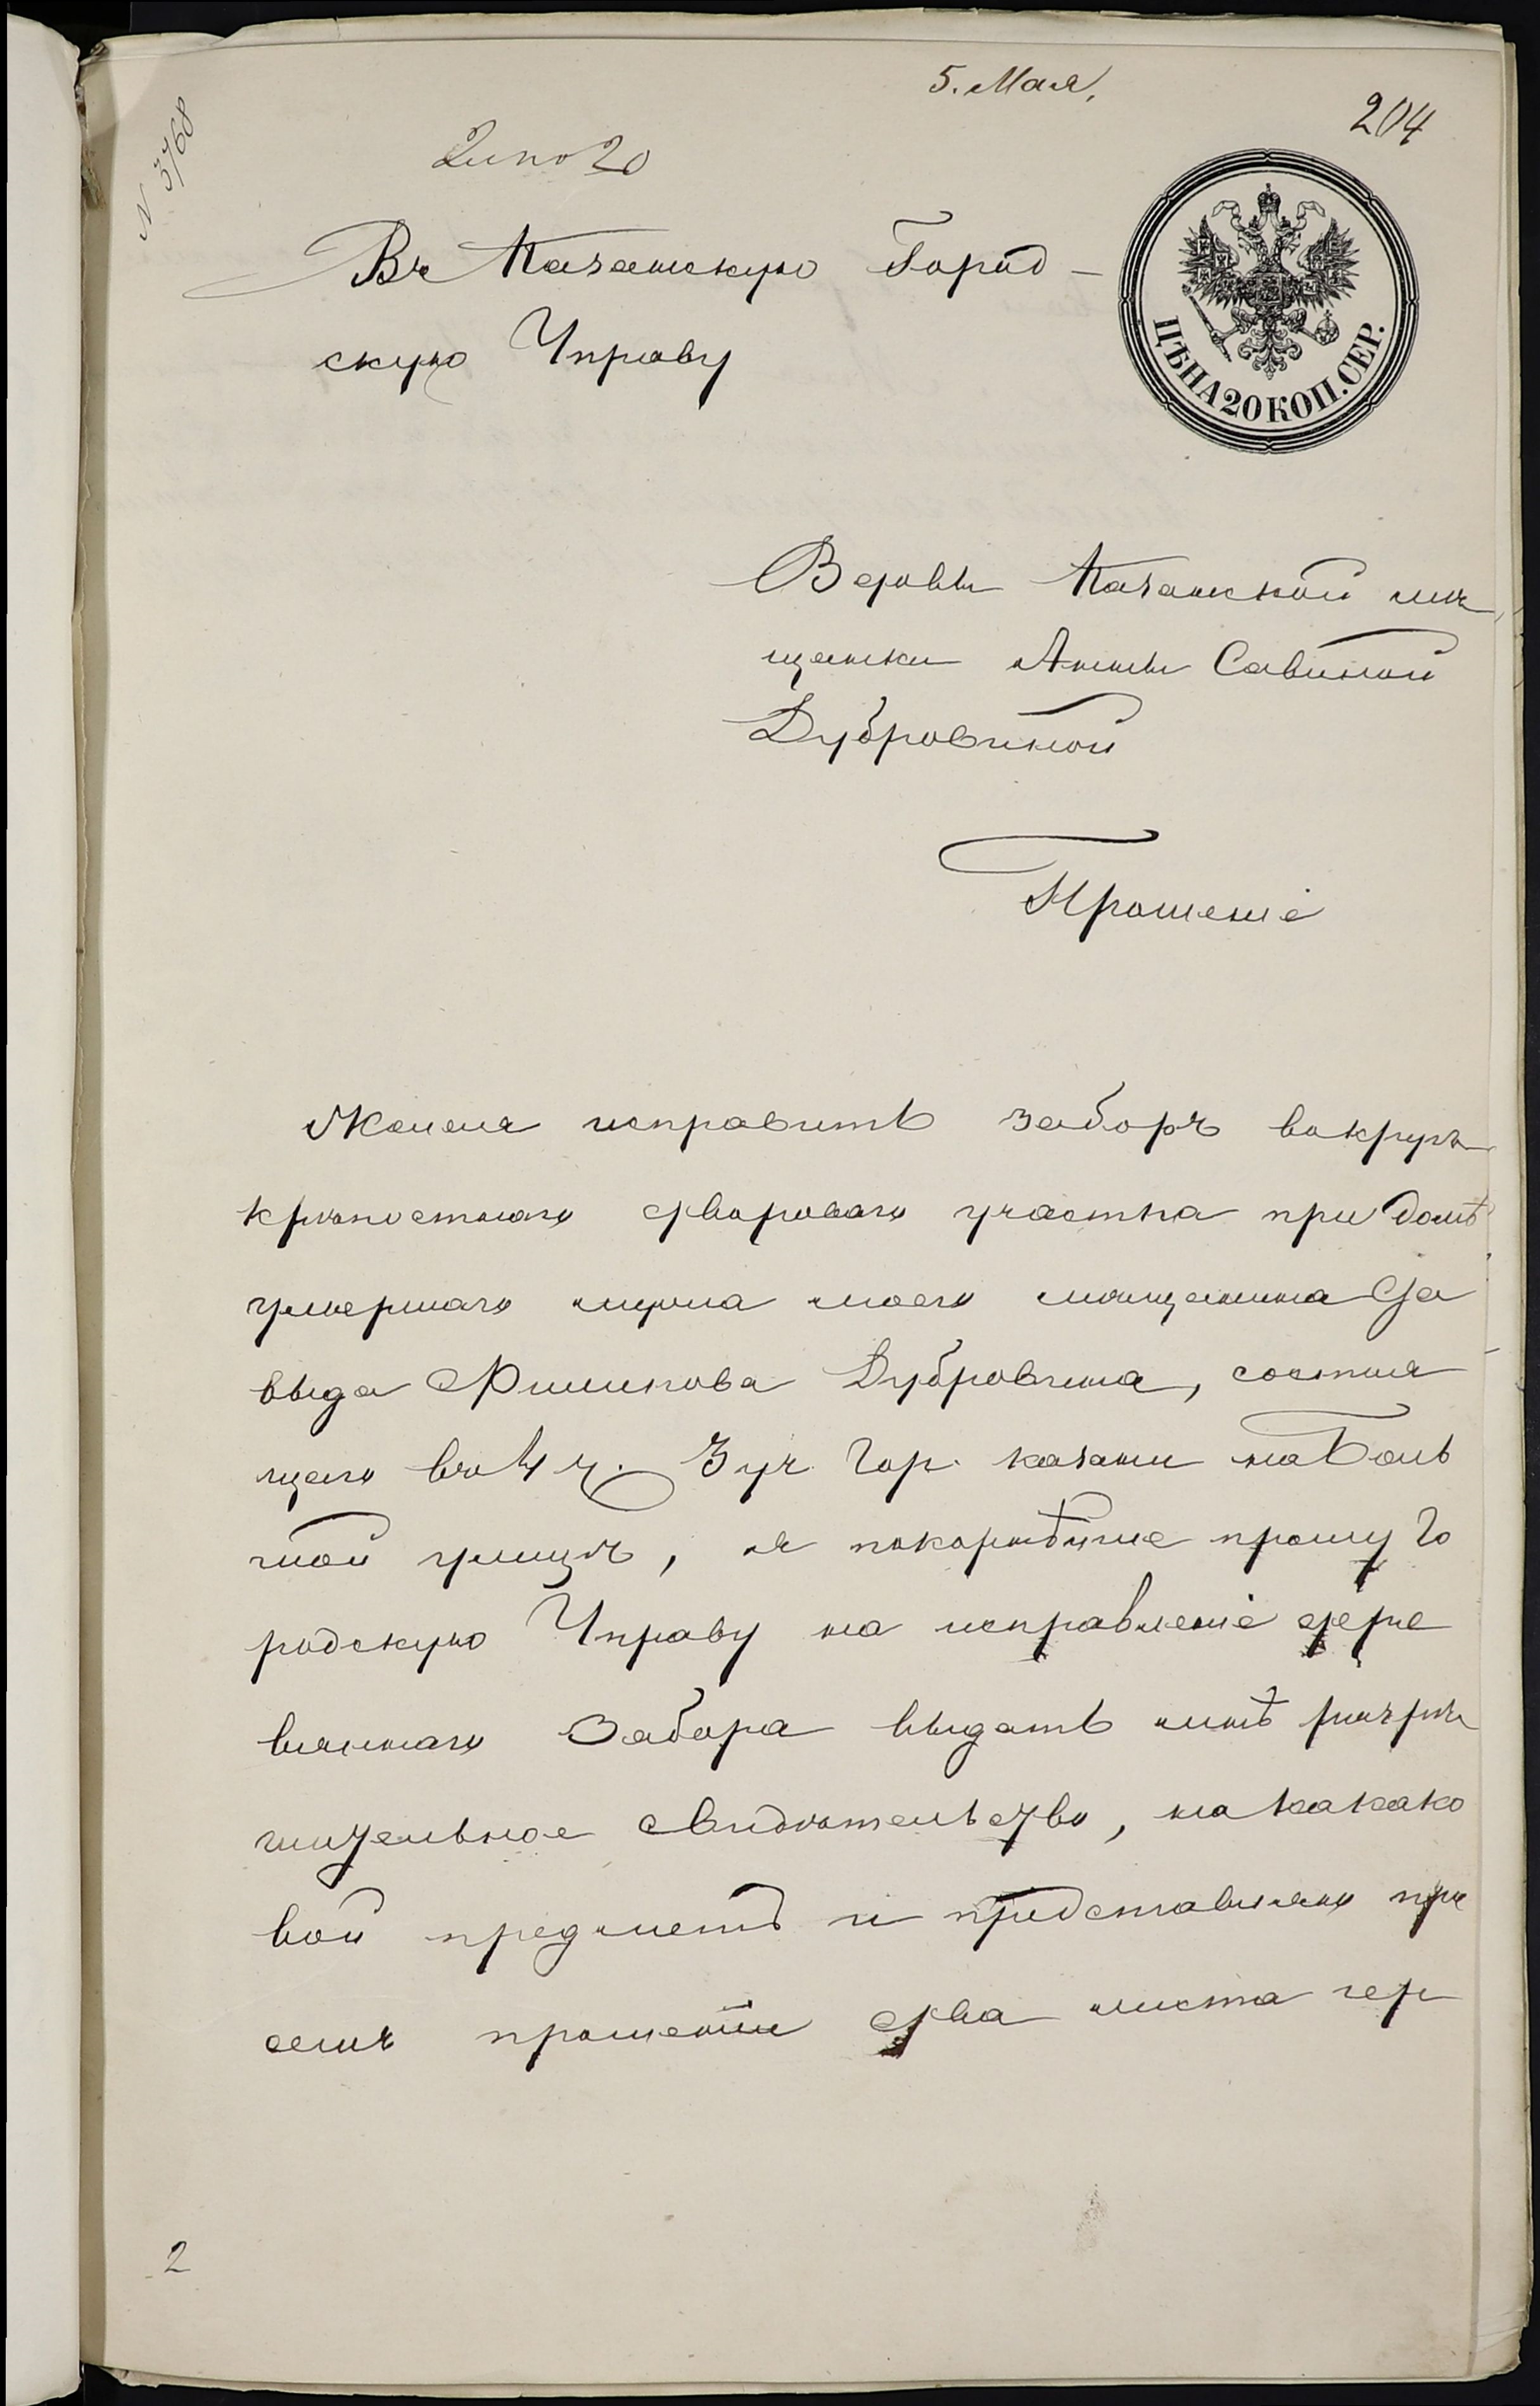 5. Мая,
204
N 3768
2 и по 20
Въ Казанскую Город-
скую Управу
ЦѢНА 20 КОП. СЕР.
Вдовы Казанской мѣ
щанки Анны Савиной
Дубровиной
Прошеніе
Желая исправить заборъ вокругъ
крѣпостнаго двороваго участка при домѣ
умершаго мужа моего мѣщанина Да
выда Филипова Дубровина, состоя
щаго во 4 ч. 3 уч. Гор. Казани на Боль
шой улицѣ, я покорнѣйше прошу Го
родскую Управу на исправленіе дере
вяннаго Забора выдать мнѣ разрѣ
шительное свидѣтельство, на каково
вой предметъ и представляю при
семъ прошеніи два листа гер
2